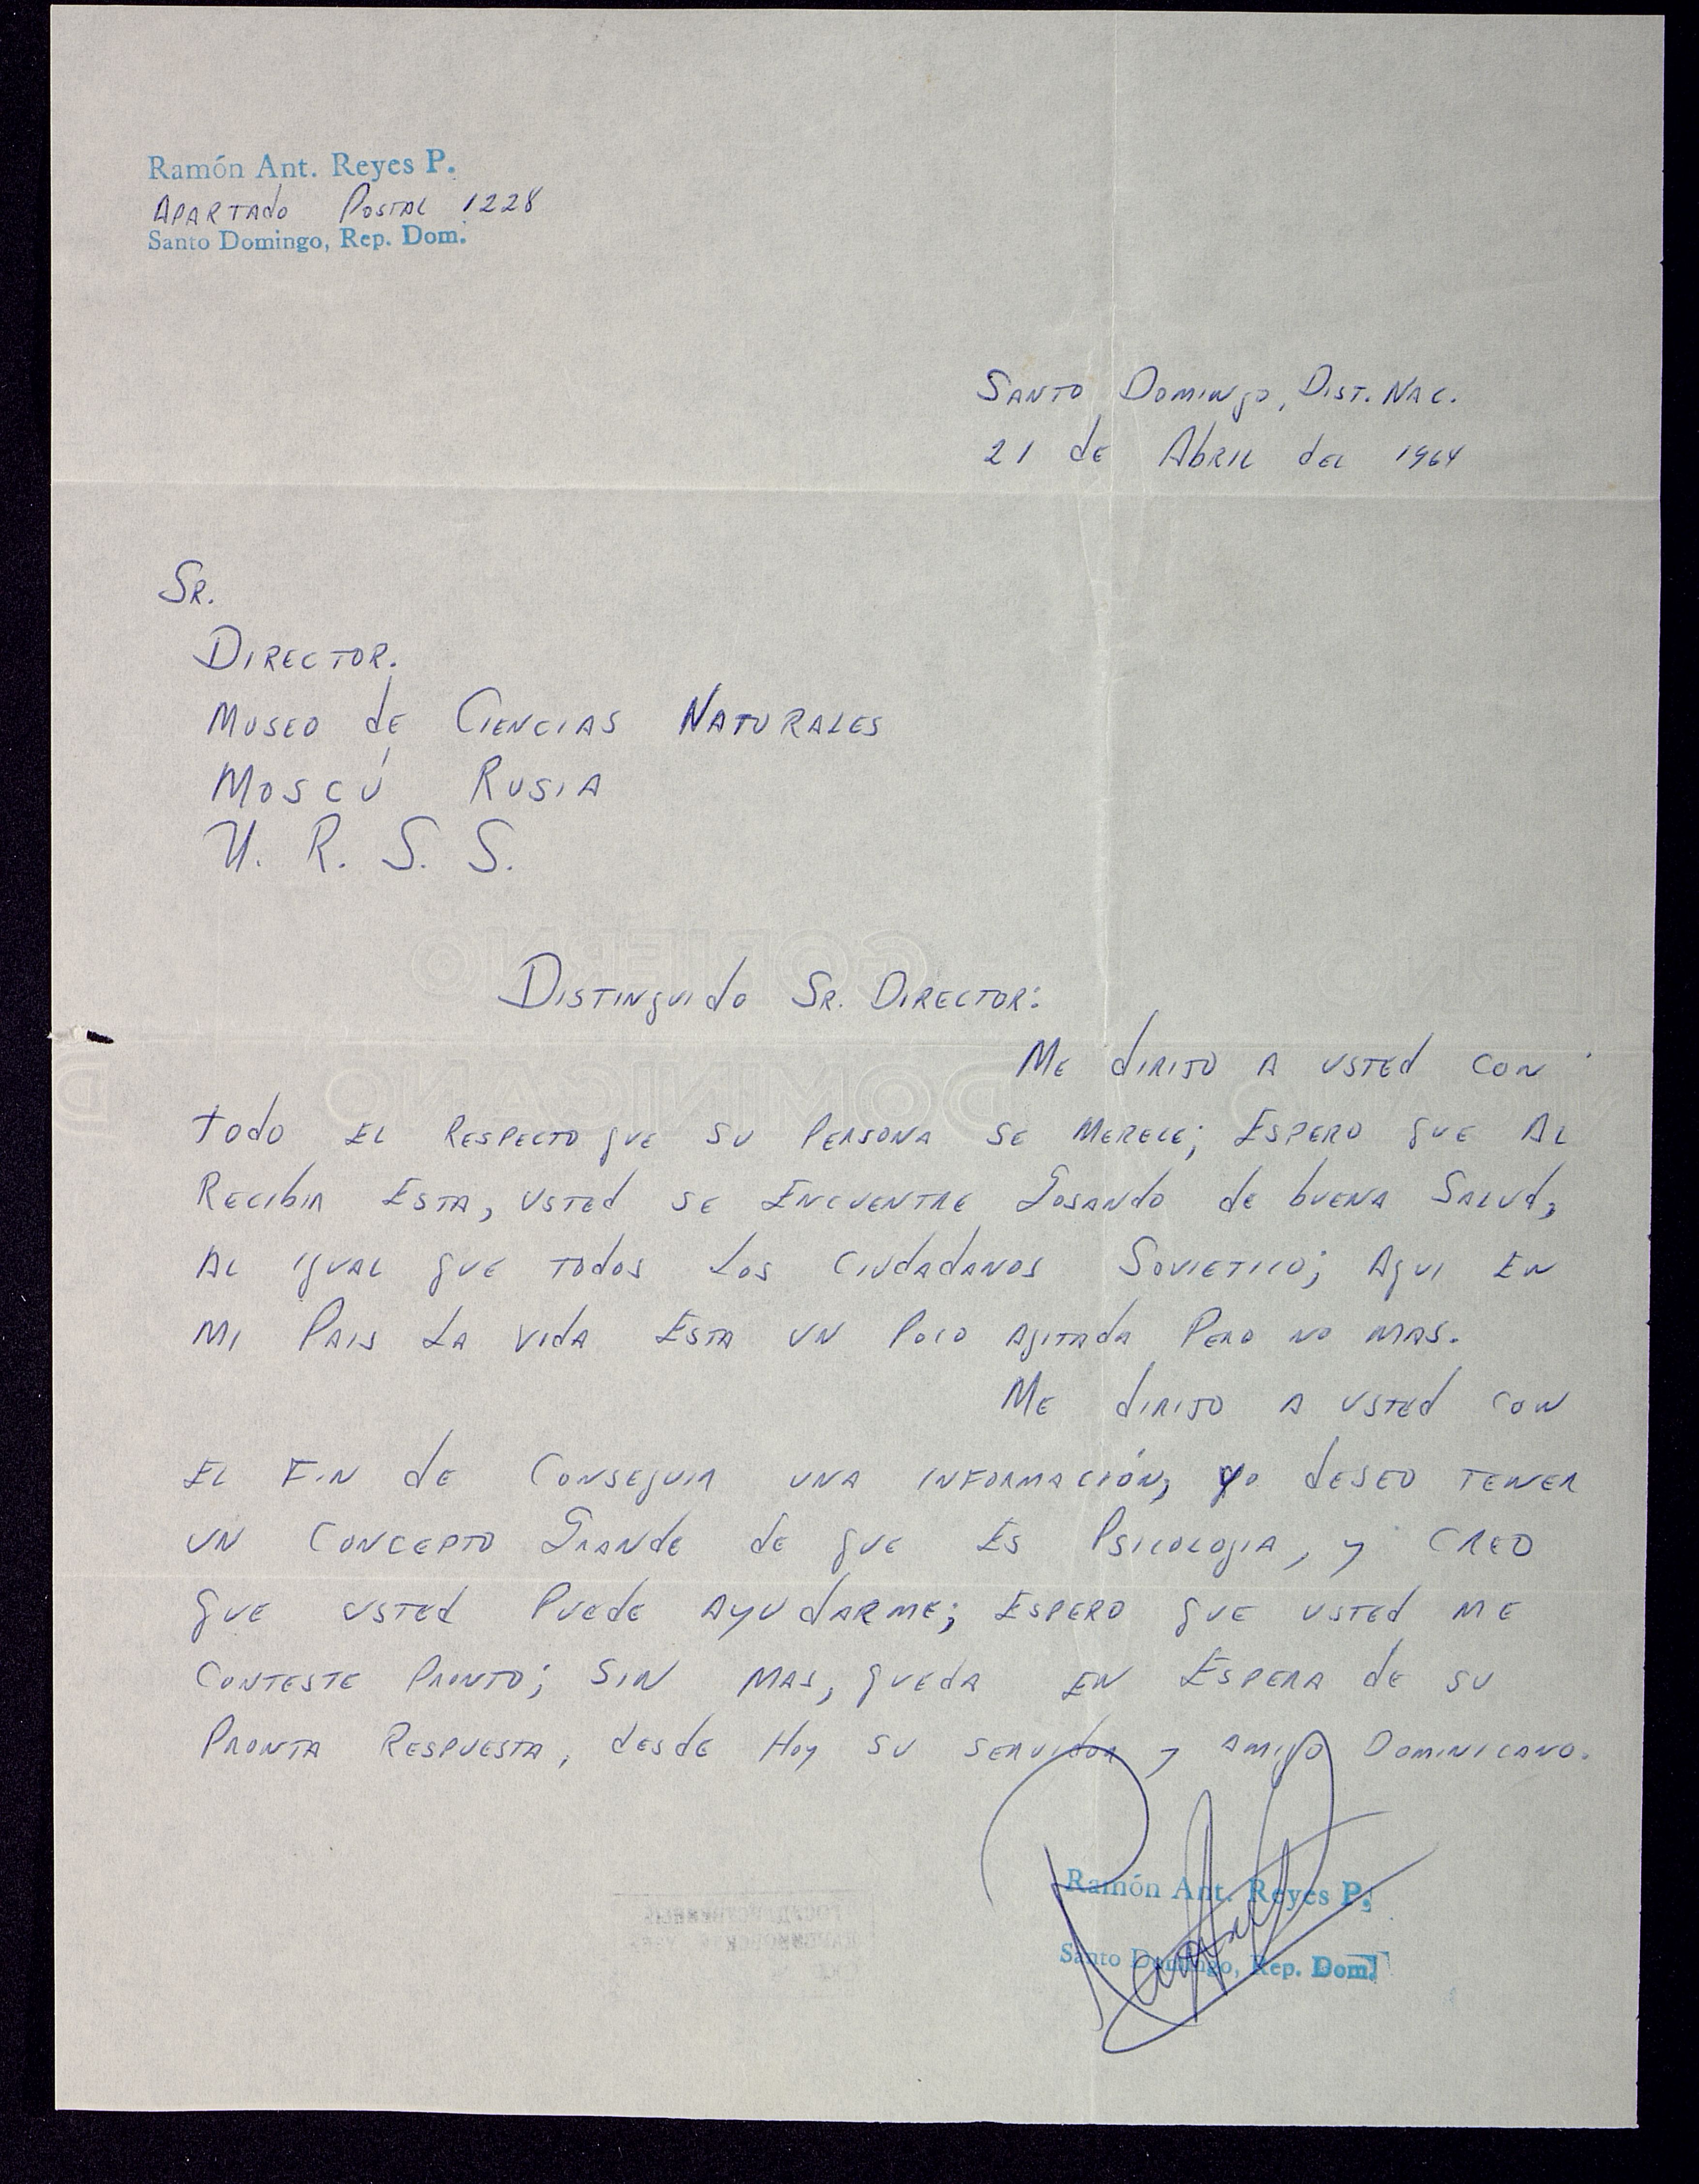 Ramón Ant. Reyes P.
Apartado Postal 1228
Santo Domingo, Rep. Dom.
Santo Domingo, Dist. Nac.
21 de Abril del 1964
Sr.
Director.
Museo de Ciencias Naturales
Moscú Rusia
U. R. S. S.
GOBIERNO
Distinguido Sr. Director:
Me dirijo a usted con
DOMINICANO
todo el respecto que su persona se merece; espero que al
recibir esta, usted se encuentre gosando de buena salud,
al igual que todos los ciudadanos Sovietico; aqui en
mi pais la vida esta un poco agitada pero no mas.
Me dirijo a usted con
el fin de conseguir una información, yo deseo tener
un concepto grande de que es Psicologia, y creo
que usted puede ayudarme; espero que usted me
conteste pronto; sin mas, queda en espera de su
pronta respuesta, desde hoy su servidor y amigo Dominicano.
Ramón Ant. Reyes P.
Santo Domingo, Rep. Dom.